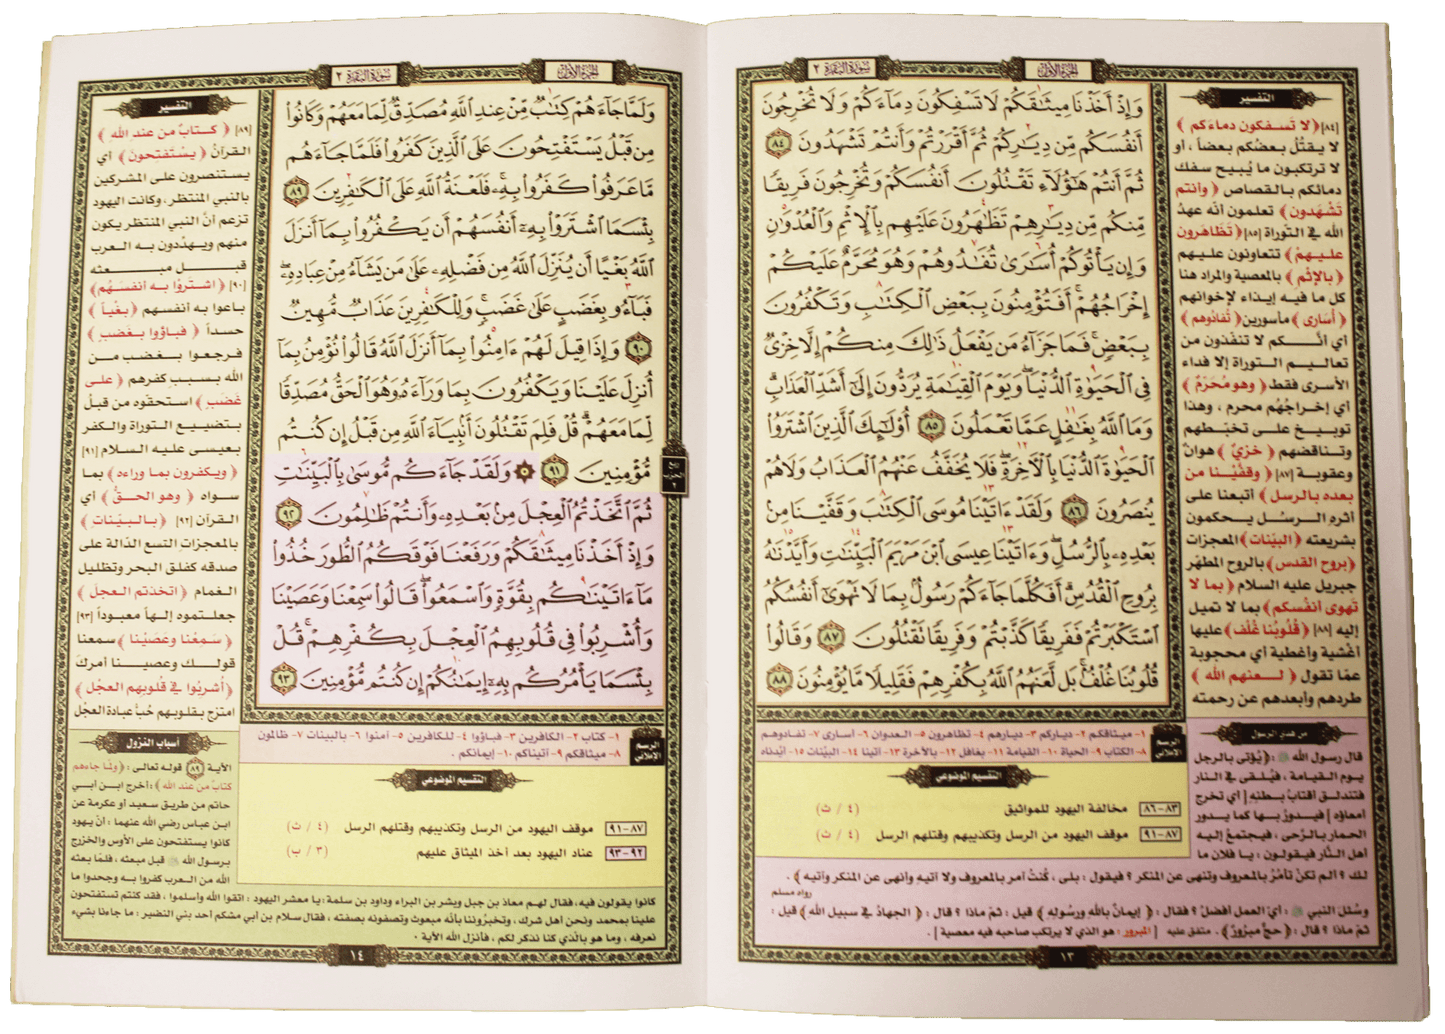 الجزء الأول
سورة البقرة ٢
وَإِذْ أَخَذْنَا مِيثَٰقَكُمْ لَا تَسْفِكُونَ دِمَآءَكُمْ وَلَا تُخْرِجُونَ
أَنفُسَكُم مِّن دِيَٰرِكُمْ ثُمَّ أَقْرَرْتُمْ وَأَنتُمْ تَشْهَدُونَ ٨٤
ثُمَّ أَنتُمْ هَٰٓؤُلَآءِ تَقْتُلُونَ أَنفُسَكُمْ وَتُخْرِجُونَ فَرِيقًا
مِّنكُم مِّن دِيَٰرِهِمْ تَظَٰهَرُونَ عَلَيْهِم بِٱلْإِثْمِ وَٱلْعُدْوَٰنِ
وَإِن يَأْتُوكُمْ أُسَٰرَىٰ تُفَٰدُوهُمْ وَهُوَ مُحَرَّمٌ عَلَيْكُمْ
إِخْرَاجُهُمْ ۚ أَفَتُؤْمِنُونَ بِبَعْضِ ٱلْكِتَٰبِ وَتَكْفُرُونَ
بِبَعْضٍ ۚ فَمَا جَزَآءُ مَن يَفْعَلُ ذَٰلِكَ مِنكُمْ إِلَّا خِزْىٌ
فِى ٱلْحَيَوٰةِ ٱلدُّنْيَا ۖ وَيَوْمَ ٱلْقِيَٰمَةِ يُرَدُّونَ إِلَىٰٓ أَشَدِّ ٱلْعَذَابِ ۗ
وَمَا ٱللَّهُ بِغَٰفِلٍ عَمَّا تَعْمَلُونَ ٨٥ أُو۟لَٰٓئِكَ ٱلَّذِينَ ٱشْتَرَوُا۟
ٱلْحَيَوٰةَ ٱلدُّنْيَا بِٱلْءَاخِرَةِ ۖ فَلَا يُخَفَّفُ عَنْهُمُ ٱلْعَذَابُ وَلَا هُمْ
يُنصَرُونَ ٨٦ وَلَقَدْ ءَاتَيْنَا مُوسَى ٱلْكِتَٰبَ وَقَفَّيْنَا مِنۢ
بَعْدِهِۦ بِٱلرُّسُلِ ۖ وَءَاتَيْنَا عِيسَى ٱبْنَ مَرْيَمَ ٱلْبَيِّنَٰتِ وَأَيَّدْنَٰهُ
بِرُوحِ ٱلْقُدُسِ ۗ أَفَكُلَّمَا جَآءَكُمْ رَسُولٌۢ بِمَا لَا تَهْوَىٰٓ أَنفُسُكُمُ
ٱسْتَكْبَرْتُمْ فَفَرِيقًا كَذَّبْتُمْ وَفَرِيقًا تَقْتُلُونَ ٨٧ وَقَالُوا۟
قُلُوبُنَا غُلْفٌۢ ۚ بَل لَّعَنَهُمُ ٱللَّهُ بِكُفْرِهِمْ فَقَلِيلًا مَّا يُؤْمِنُونَ ٨٨
التفسير
[٨٤] ﴿لا تسفكون دماءكم﴾
لا يقتُل بعضُكم بعضاً ، أو
لا ترتكبون ما يُبيح سفك
دمائكم بالقصاص ﴿وأنتم
تشهدون﴾ تعلمون أنه عهدُ
الله في التوراة [٨٥] ﴿تظاهرون
عليهم﴾ تتعاونون عليهم
﴿بالإثم﴾ بالمعصية والمراد هنا
كل ما فيه إيذاء لإخوانهم
﴿أسارى﴾ مأسورين ﴿تُفادُوهم﴾
أي أنَّكم لا تنفّذون من
تعاليم التوراة إلا فداء
الأسرى فقط ﴿وهو مُحَرّمٌ﴾
أي إخراجُهُم محرم ، وهذا
توبيخ على تخبطهم
وتناقضهم ﴿خزيٌ﴾ هوانٌ
وعقوبة [٨٧] ﴿وقفّيْنا من
بعده بالرسل﴾ أتبعنا على
أثره الرسُل يحكمون
بشريعته ﴿البيّنات﴾ المعجزات
﴿بروح القدس﴾ بالروح المطهّر
جبريل عليه السلام ﴿بما لا
تهوى أنفُسكم﴾ بما لا تميل
إليه [٨٨] ﴿قُلُوبُنا غُلْف﴾ عليها
أغشية وأغطية أي محجوبة
عمّا تقول ﴿لعنهم الله﴾
طردهم وأبعدهم عن رحمته
الرسم الإملائي
١- ميثاقكم ٢- دياركم ٣- ديارهم ٤- تظاهرون ٥- العدوان ٦- أسارى ٧- تفادوهم
٨- الكتاب ٩- الحياة ١٠- القيامة ١١- بغافل ١٢- بالآخرة ١٣- آتينا ١٤- البيّنات ١٥- أيّدناه
التقسيم الموضوعي
٨٣-٨٦ مخالفة اليهود للمواثيق (٤ / ث)
٨٧-٩١ موقف اليهود من الرسل وتكذيبهم وقتلهم الرسل (٤ / ث)
من هدي الرسول
قال رسول الله ﷺ : ﴿يُؤتى بالرجل
يوم القيامة ، فيُلقى في النار
فتندلق أقتابُ بطنه [ أي تخرج
أمعاؤه ] فيدورُ بها كما يدور
الحمار بالرَّحى ، فيجتمعُ إليه
أهل النَّار فيقولون : يا فلان ما
لك ؟ ألم تكنْ تأمُرُ بالمعروف وتنهى عن المنكر ؟ فيقول : بلى ، كُنتُ آمر بالمعروف ولا آتيه وأنهى عن المنكر وآتيه﴾ .
رواه مسلم
وسُئل النبي ﷺ : أيّ العمل أفضلُ ؟ فقال : ﴿إيمانٌ بالله ورسوله﴾ قيل : ثم ماذا ؟ قال : ﴿الجهادُ في سبيل الله﴾ قيل :
ثم ماذا ؟ قال : ﴿حجٌّ مبرُورٌ﴾ . متفق عليه [ المبرور : هو الذي لا يرتكب صاحبه فيه معصية ] .
١٣
الجزء الأول
سورة البقرة ٢
وَلَمَّا جَآءَهُمْ كِتَٰبٌ مِّنْ عِندِ ٱللَّهِ مُصَدِّقٌ لِّمَا مَعَهُمْ وَكَانُوا۟
مِن قَبْلُ يَسْتَفْتِحُونَ عَلَى ٱلَّذِينَ كَفَرُوا۟ فَلَمَّا جَآءَهُم
مَّا عَرَفُوا۟ كَفَرُوا۟ بِهِۦ ۚ فَلَعْنَةُ ٱللَّهِ عَلَى ٱلْكَٰفِرِينَ ٨٩
بِئْسَمَا ٱشْتَرَوْا۟ بِهِۦٓ أَنفُسَهُمْ أَن يَكْفُرُوا۟ بِمَآ أَنزَلَ
ٱللَّهُ بَغْيًا أَن يُنَزِّلَ ٱللَّهُ مِن فَضْلِهِۦ عَلَىٰ مَن يَشَآءُ مِنْ عِبَادِهِۦ ۖ
فَبَآءُو بِغَضَبٍ عَلَىٰ غَضَبٍ ۚ وَلِلْكَٰفِرِينَ عَذَابٌ مُّهِينٌ
٩٠ وَإِذَا قِيلَ لَهُمْ ءَامِنُوا۟ بِمَآ أَنزَلَ ٱللَّهُ قَالُوا۟ نُؤْمِنُ بِمَآ
أُنزِلَ عَلَيْنَا وَيَكْفُرُونَ بِمَا وَرَآءَهُۥ وَهُوَ ٱلْحَقُّ مُصَدِّقًا
لِّمَا مَعَهُمْ ۗ قُلْ فَلِمَ تَقْتُلُونَ أَنۢبِيَآءَ ٱللَّهِ مِن قَبْلُ إِن كُنتُم
مُّؤْمِنِينَ ٩١ ۞ وَلَقَدْ جَآءَكُم مُّوسَىٰ بِٱلْبَيِّنَٰتِ
ثُمَّ ٱتَّخَذْتُمُ ٱلْعِجْلَ مِنۢ بَعْدِهِۦ وَأَنتُمْ ظَٰلِمُونَ ٩٢
وَإِذْ أَخَذْنَا مِيثَٰقَكُمْ وَرَفَعْنَا فَوْقَكُمُ ٱلطُّورَ خُذُوا۟
مَآ ءَاتَيْنَٰكُم بِقُوَّةٍ وَٱسْمَعُوا۟ ۖ قَالُوا۟ سَمِعْنَا وَعَصَيْنَا
وَأُشْرِبُوا۟ فِى قُلُوبِهِمُ ٱلْعِجْلَ بِكُفْرِهِمْ ۚ قُلْ
بِئْسَمَا يَأْمُرُكُم بِهِۦٓ إِيمَٰنُكُمْ إِن كُنتُم مُّؤْمِنِينَ ٩٣
ربع
الحزب
٢
التفسير
[٨٩] ﴿كتابٌ من عند الله﴾
القرآنُ ﴿يسْتفتحون﴾ أي
يستنصرون على المشركين
بالنبي المنتظر . وكانت اليهود
تزعم أنّ النبي المنتظر يكون
منهم ويهدّدون به العرب
قبل مبعثه
[٩٠] ﴿اشتروْا به أنفسَهُم﴾
باعوا به أنفسهم ﴿بغْياً﴾
حسداً ﴿فباؤوا بغضب﴾
فرجعوا بغضب من
الله بسبب كفرهم ﴿على
غضب﴾ استحقّوه من قبلُ
بتضييع التوراة والكفر
بعيسى عليه السلام [٩١]
﴿ويكفرون بما وراءه﴾ بما
سواه ﴿وهو الحقُّ﴾ أي
القرآن [٩٢] ﴿بالبيّنات﴾
بالمعجزات التسع الدّالة على
صدقه كفلق البحر وتظليل
الغمام ﴿اتخذتم العجلَ﴾
جعلتموه إلهاً معبوداً [٩٣]
﴿سَمِعْنا وعصَيْنا﴾ سمعنا
قولك وعصينا أمركَ
﴿أشربُوا في قُلوبهم العجْل﴾
امتزج بقلوبهم حُبُّ عبادة العجْل
الرسم الإملائي
١- كتاب ٢- الكافرين ٣- فباؤوا ٤- للكافرين ٥- آمنوا ٦- بالبينات ٧- ظالمون
٨- ميثاقكم ٩- آتيناكم ١٠- إيمانكم .
التقسيم الموضوعي
٨٧-٩١ موقف اليهود من الرسل وتكذيبهم وقتلهم الرسل (٤ / ث)
٩٢-٩٣ عناد اليهود بعد أخذ الميثاق عليهم (٣ / ب)
أسباب النزول
الآية ٨٩ قوله تعالى : ﴿ولمّا جاءهم
كتابٌ من عند الله﴾ : أخرج ابن أبي
حاتم من طريق سعيد أو عكرمة عن
ابن عباس رضي الله عنهما : أنّ يهود
كانوا يستفتحون على الأوس والخزرج
برسول الله ﷺ قبل مبعثه ، فلمّا بعثه
الله من العرب كفروا به وجحدوا ما
كانوا يقولون فيه، فقال لهم معاذ بن جبل وبشر بن البراء وداود بن سلمة : يا معشر اليهود : اتقوا الله وأسلموا ، فقد كنتم تستفتحون
علينا بمحمد ونحن أهل شرك، وتخبرُوننا بأنَّه مبعوث وتصفونه بصفته ، فقال سلام بن مشكم أحد بني النضير : ما جاءنا بشيء
نعرفه ، وما هو بالّذي كنا نذكر لكم ، فأنزل الله الآية .
١٤